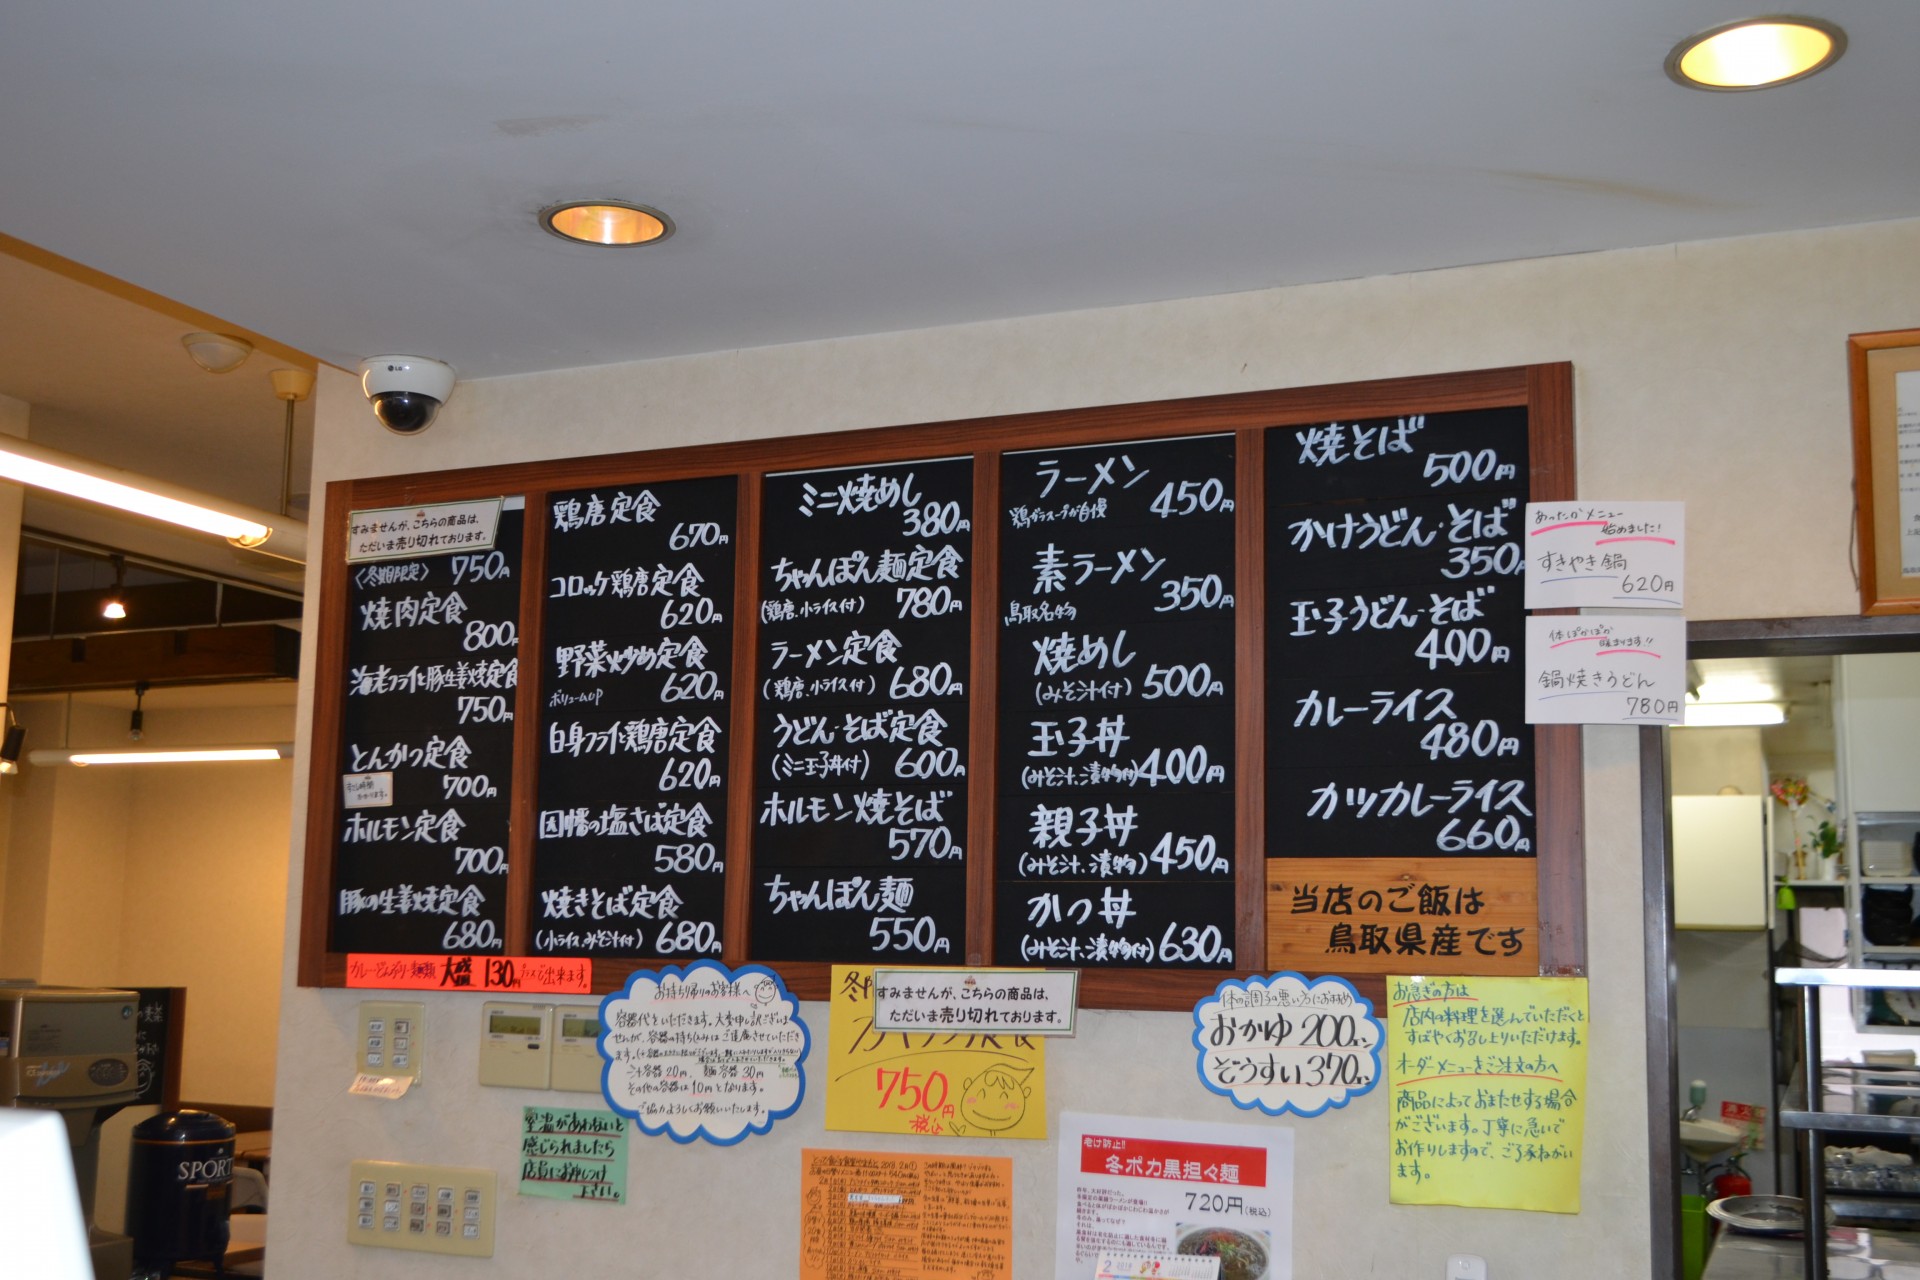 すみませんが、こちらの商品は、
ただいま売り切れております。
〈冬期限定〉 750円
焼肉定食
800円
海老フライと豚生姜焼定食
750円
とんかつ定食
700円
ホルモン定食
700円
豚の生姜焼定食
680円
鶏唐定食
670円
コロッケ鶏唐定食
620円
野菜炒め定食
ボリュームUP
620円
白身フライと鶏唐定食
620円
因幡の塩さば定食
580円
焼きそば定食
(小ライス、みそ汁付) 680円
ミニ焼めし
380円
ちゃんぽん麺定食
(鶏唐、小ライス付) 780円
ラーメン定食
(鶏唐、小ライス付) 680円
うどん・そば定食
(ミニ玉子丼付) 600円
ホルモン焼そば
570円
ちゃんぽん麺
550円
ラーメン
鶏ガラスープが自慢 450円
素ラーメン
鳥取名物 350円
焼めし
(みそ汁付) 500円
玉子丼
(みそ汁、漬物付) 400円
親子丼
(みそ汁、漬物) 450円
かつ丼
(みそ汁、漬物付) 630円
焼そば
500円
かけうどん・そば
350円
玉子うどん・そば
400円
カレーライス
480円
カツカレーライス
660円
当店のご飯は
鳥取県産です
あったかメニュー
始めました!
すきやき鍋
620円
体ぽかぽか
暖まります!!
鍋焼きうどん
780円
カレー・どんぶり・麺類 大盛 130円プラスで出来ます。
お持ち帰りのお客様へ
容器代をいただきます。大変申し訳ございま
せんが、容器の持ち込みはご遠慮させていただき
ます。
容器20円、麺容器30円
その他の容器は10円となります。
ご協力よろしくお願いいたします。
室温があわないと
感じられましたら
店員にお申しつけ
下さい。
すみませんが、こちらの商品は、
ただいま売り切れております。
750円
税込
体の調子の悪い方におすすめ
おかゆ 200円
ぞうすい 370円
お急ぎの方は
店内の料理を選んでいただくと
すばやくお召し上りいただけます。
オーダーメニューをご注文の方へ
商品によっておまたせする場合
がございます。丁寧に急いで
お作りしますので、ご了承ねがい
ます。
老け防止!!
冬ポカ黒担々麺
720円(税込)
SPORT
LG